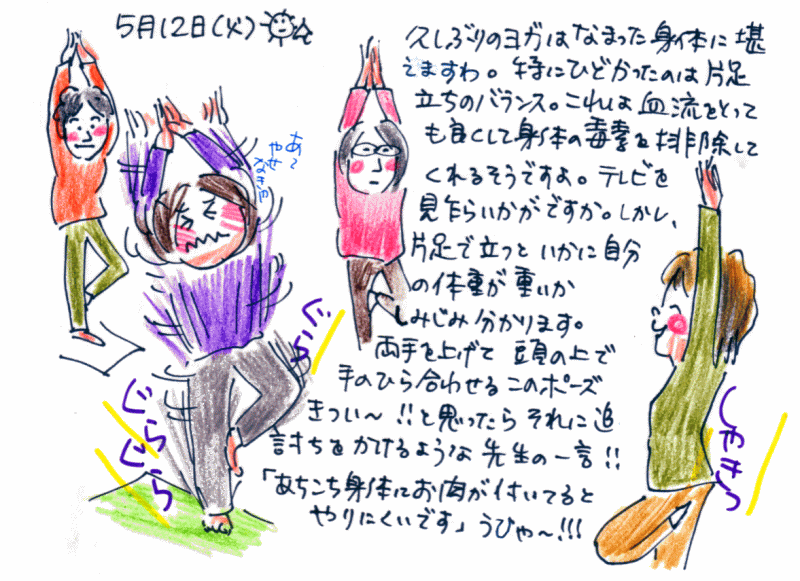 5月12日(火)
久しぶりのヨガはなまった身体に堪
えますわ。特にひどかったのは片足
立ちのバランス。これは血流をとって
も良くして身体の毒素を排除して
くれるそうですよ。テレビを
見乍らいかがですか。しかし、
片足で立つといかに自分
の体重が重いか
しみじみ分かります。
両手を上げて頭の上で
手のひら合わせるこのポーズ
きつい〜!!と思ったらそれに追
討ちをかけるような先生の一言!!
「あちこち身体にお肉が付いてると
やりにくいです」うひゃ〜!!!
あ〜
ぐら
ぐら
ぐら
しゃきっ